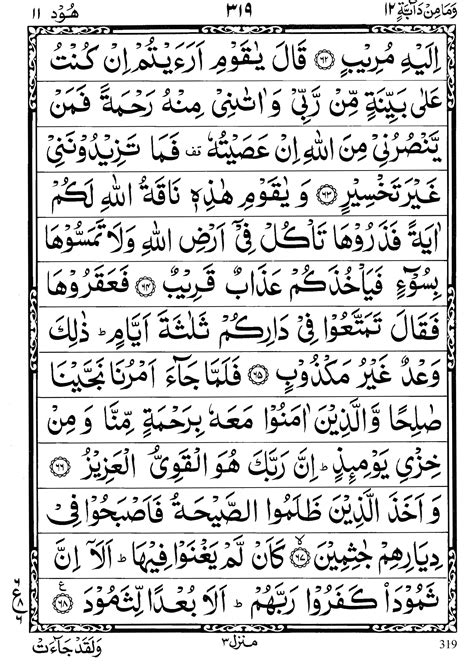 وَمَا مِنْ دَآبَّةٍ ١٢ ٣١٩ هُوْد ١١
اِلَيْهِ مُرِيْبٍ ﴿٦٢﴾ قَالَ يٰقَوْمِ اَرَءَيْتُمْ اِنْ كُنْتُ
عَلٰى بَيِّنَةٍ مِّنْ رَّبِّىْ وَاٰتٰىنِىْ مِنْهُ رَحْمَةً فَمَنْ
يَّنْصُرُنِىْ مِنَ اللّٰهِ اِنْ عَصَيْتُهٗ قف فَمَا تَزِيْدُوْنَنِىْ
غَيْرَ تَخْسِيْرٍ ﴿٦٣﴾ وَ يٰقَوْمِ هٰذِهٖ نَاقَةُ اللّٰهِ لَكُمْ
اٰيَةً فَذَرُوْهَا تَاْكُلْ فِىْۤ اَرْضِ اللّٰهِ وَلَا تَمَسُّوْهَا
بِسُوْٓءٍ فَيَاْخُذَكُمْ عَذَابٌ قَرِيْبٌ ﴿٦٤﴾ فَعَقَرُوْهَا
فَقَالَ تَمَتَّعُوْا فِىْ دَارِكُمْ ثَلٰثَةَ اَيَّامٍ ؕ ذٰلِكَ
وَعْدٌ غَيْرُ مَكْذُوْبٍ ﴿٦٥﴾ فَلَمَّا جَآءَ اَمْرُنَا نَجَّيْنَا
صٰلِحًا وَّالَّذِيْنَ اٰمَنُوْا مَعَهٗ بِرَحْمَةٍ مِّنَّا وَ مِنْ
خِزْىِ يَوْمِئِذٍ ؕ اِنَّ رَبَّكَ هُوَ الْقَوِىُّ الْعَزِيْزُ ﴿٦٦﴾
وَ اَخَذَ الَّذِيْنَ ظَلَمُوا الصَّيْحَةُ فَاَصْبَحُوْا فِىْ
دِيَارِهِمْ جٰثِمِيْنَ ﴿٦٧﴾ۙ كَاَنْ لَّمْ يَغْنَوْا فِيْهَا ؕ اَلَاۤ اِنَّ
ثَمُوْدَا۟ كَفَرُوْا رَبَّهُمْ ؕ اَلَا بُعْدًا لِّثَمُوْدَ ﴿٦٨﴾ ع
٦ ع ٨ ٦
319 منزل ٣ وَلَقَدْ جَآءَتْ